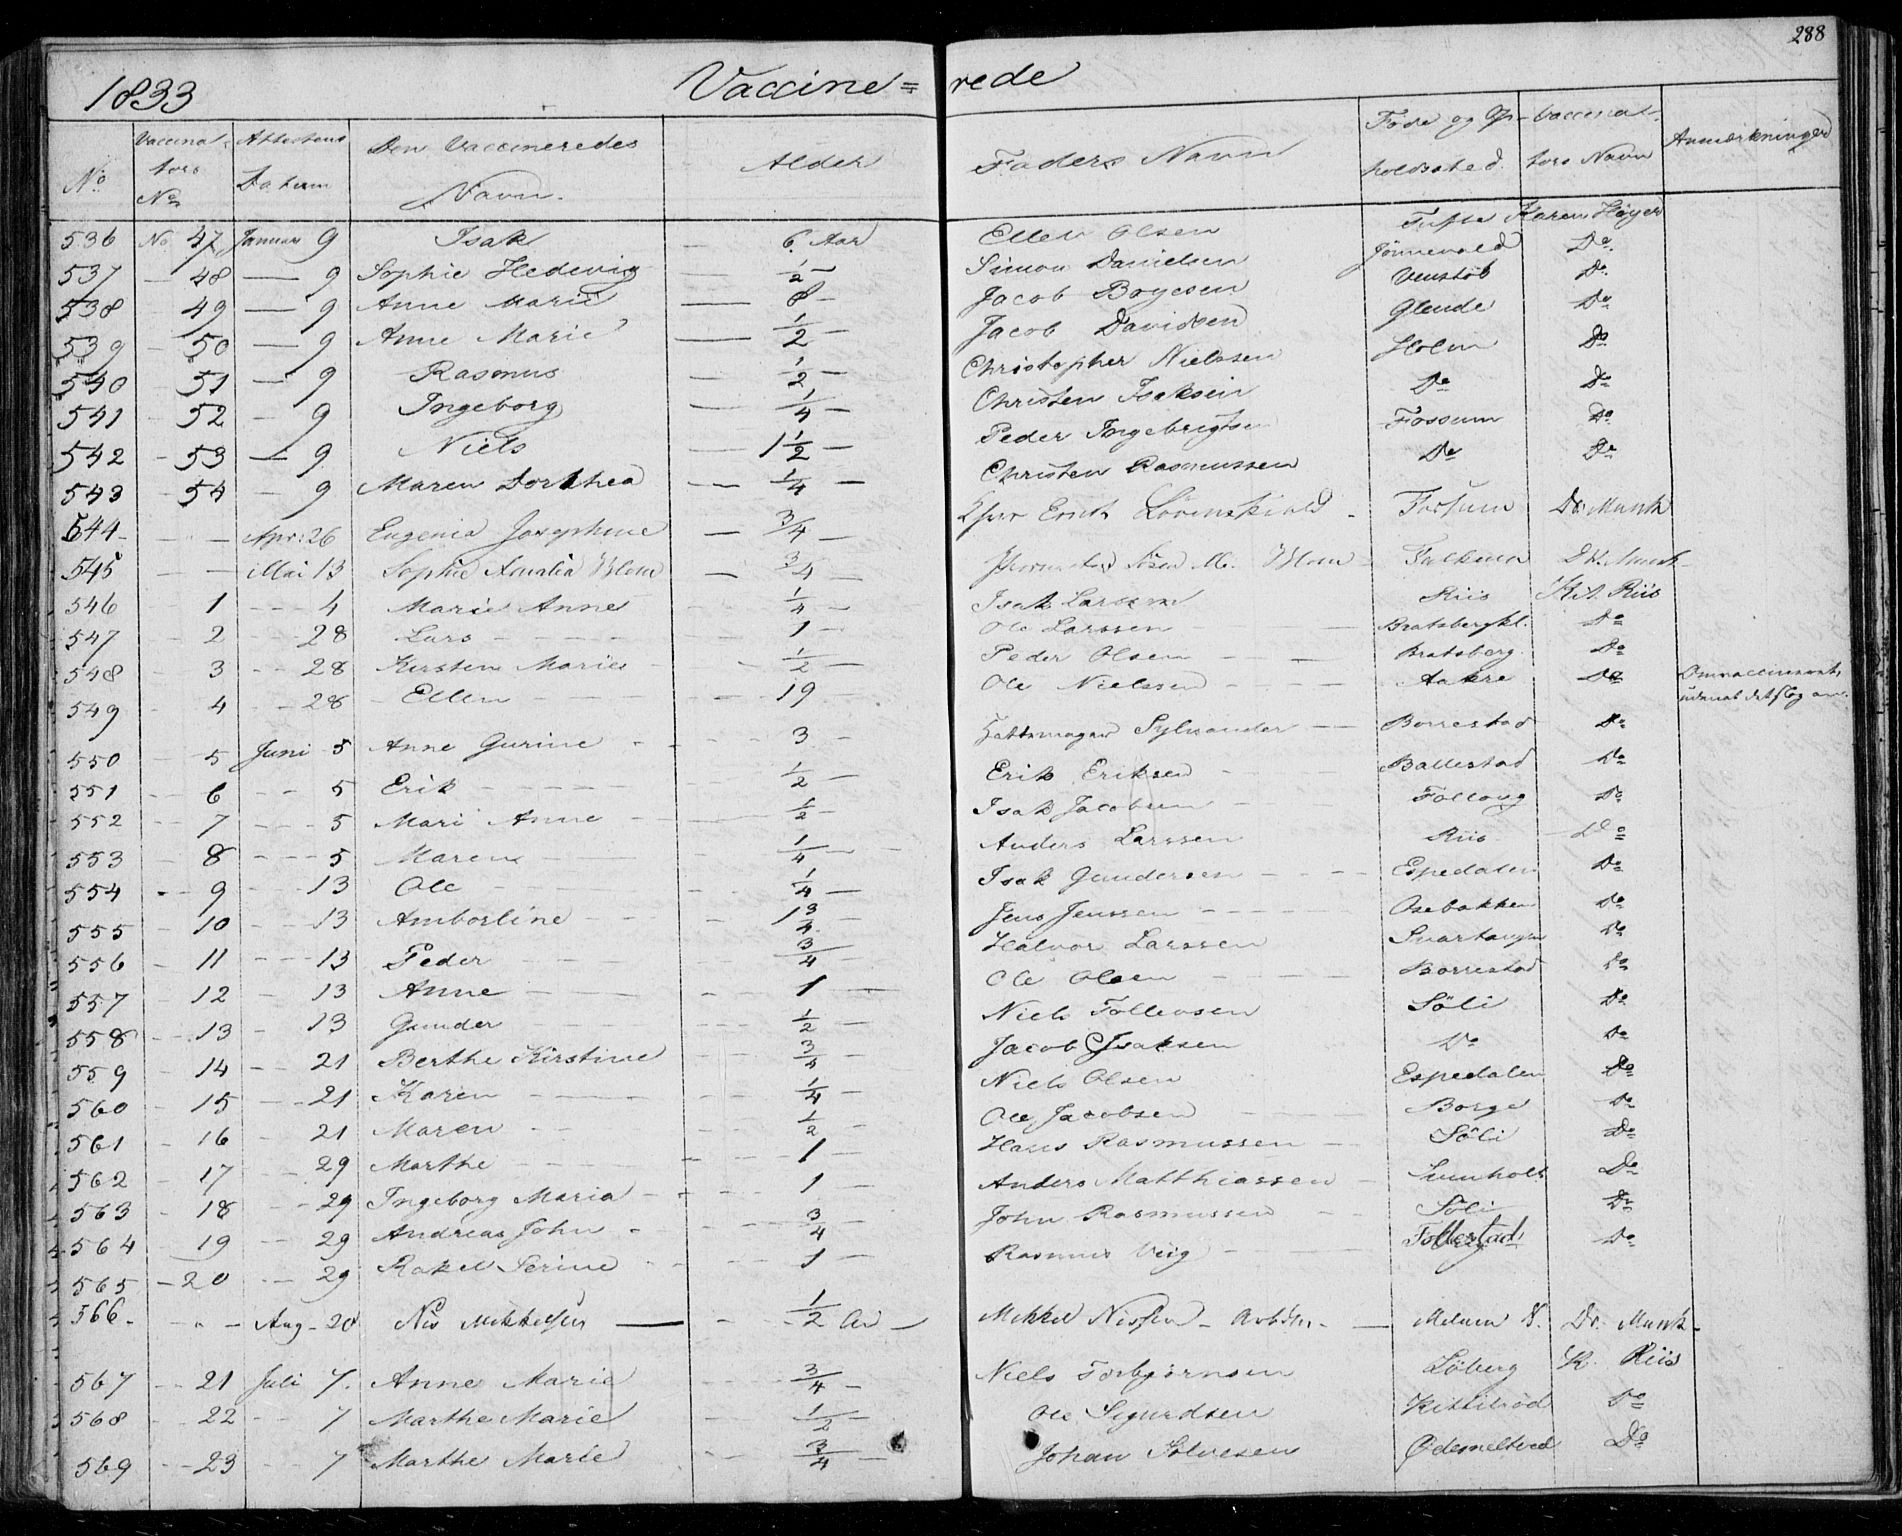 288
1833 Vaccine= rede
No Vaccinat- tors No Attestens Datum Den Vaccineredes Navn. Alder Faders Navn Føde og Op- holdssted. Vaccinat- tors Navn Anmærkninger
536 No 47 Januar 9 Isak — 6 Aar Ellev Olsen Tufte Karen Høyer
537 — 48 — 9 Sophie Hedevig — 1/2 — Simon Danielsen Jönnevald Do
538 — 49 — 9 Anne Marie — 8 — Jacob Boyesen Venstöb Do
539 — 50 — 9 Anne Marie — 1/2 — Jacob Davidsen Glende Do
540 — 51 — 9 Rasmus — 1/2 — Christopher Nielssen Holm Do
541 — 52 — 9 Ingeborg — 1/4 — Christen Isaksen Do Do
542 — 53 — 9 Niels — 1 1/2 — Peder Ingebrigtsen Fossum Do
543 — 54 — 9 Maren Dorthea — 1/4 — Christen Rasmussen Do Do
544 — — Apr: 26 Eugenia Josephine — 3/4 — Løvenskiold — Fossum Dr. Munk
545 — — Mai 13 Sophie Amalia Blom — 3/4 — Blom Falkum Dr. Munk
546 1 — 4 Marie Anne 1/4 — Isak Larssen Riis Kit. Riis
547 — 2 — 28 Lars — 1 — Ole Larssen — Bratsbergkl. Do
548 — 3 — 28 Kirsten Marie — 1/2 — Peder Olsen — Bratsberg Do
549 — 4 — 28 Ellen — 19 Ole Nielssen — Aakre Do Omvaccineret, uden at det slog an.
550 — 5 Juni 5 Anne Gurine — 3 — Hattemager Sylvander — Borrestad Do
551 — 6 — 5 Erik — 1/2 — Erik Eriksen — Ballestad Do
552 — 7 — 5 Mari Anne — 1/2 — Isak Jacobsen — Follaug Do
553 — 8 — 5 Maren — 1/4 — Anders Larssen Riis Do
554 — 9 — 13 Ole — 1/4 — Isak Gundersen — Espedalen Do
555 — 10 — 13 Amborline — 1 3/4 — Jens Jenssen — Osebakken Do
556 — 11 — 13 Peder — 3/4 — Halvor Larssen Svartangen Do
557 — 12 — 13 Anne — 1 — Ole Olsen — Borrestad Do
558 — 13 — 13 Gunder — 1/2 — Niels Tollevsen Söli Do
559 — 14 — 21 Berthe Kirstine — 3/4 — Jacob Isaksen Do Do
560 — 15 — 21 Karen — 1/4 — Niels Olsen Espedalen Do
561 — 16 — 21 Maren — 1/2 — Ole Jacobsen — Borge Do
562 — 17 — 29 Marthe — 1 — Hans Rasmussen — Söli Do
563 — 18 — 29 Ingeborg Maria — 1 — Anders Matthiassen — Svenholt Do
564 — 19 — 29 Andreas John — 3/4 — John Rasmussen — Söli Do
565 — 20 — 29 Rakel Serine — 1 — Rasmus Viig — Follestad Do
566 — — Aug — 20 Nis Mikkelsen — 1/2 Mikkel Nissen — Melum Dr. Munk
567 — 21 Juli 7. Anne Marie — 3/4 — Niels Torbjørnsen Löberg K. Riis
568 — 22 — 7 Marthe Marie — 1/2 — Ole Sigurdsen Kittilröd Do
569 — 23 — 7 Marthe Marie — 3/4 — Johan Solvesen Do